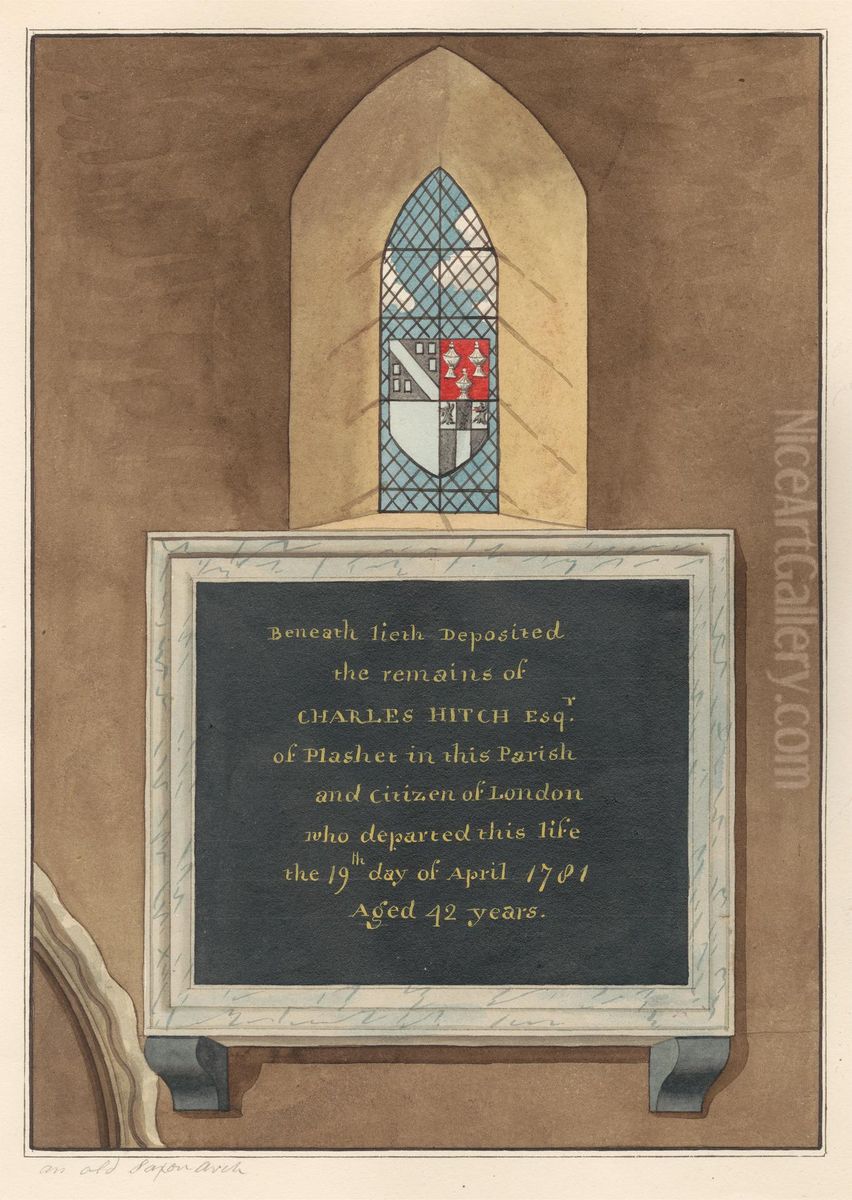 Beneath lieth Deposited
the remains of
CHARLES HITCH Esqr.
of Plashet in this Parish
and Citizen of London
who departed this life
the 19th day of April 1781
Aged 42 years.
an old Saxon Arch
NiceArtGallery.com